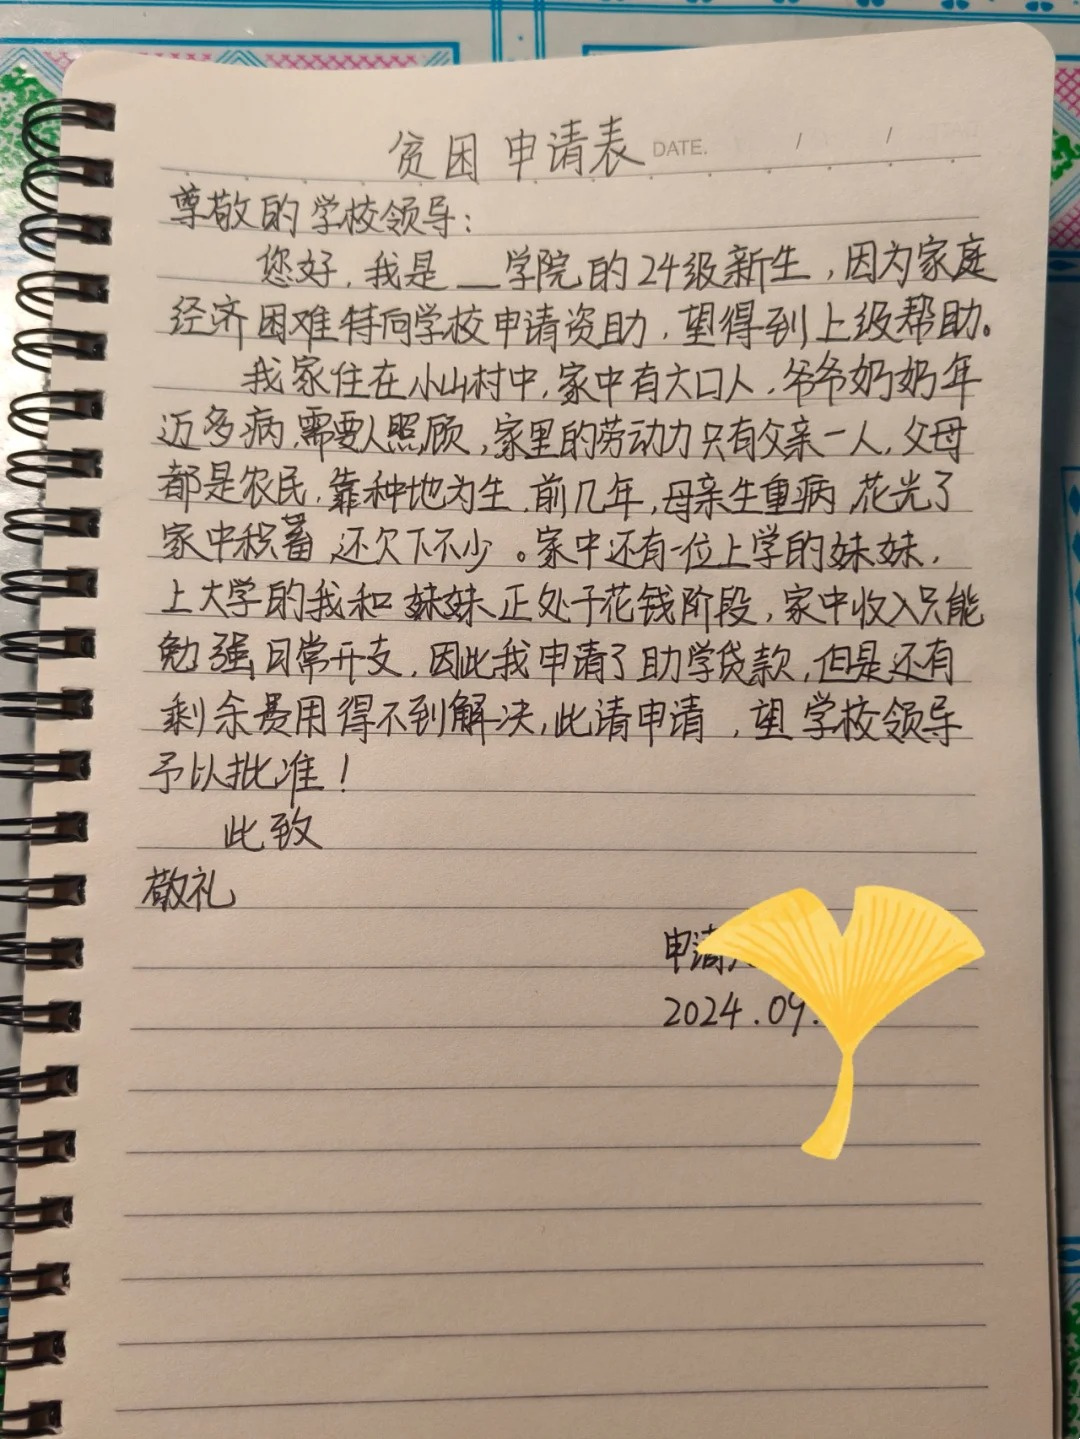 贫困申请表 DATE. / /
尊敬的学校领导：
您好，我是__学院的24级新生，因为家庭
经济困难特向学校申请资助，望得到上级帮助。
我家住在小山村中，家中有六口人，爷爷奶奶年
迈多病，需要人照顾，家里的劳动力只有父亲一人，父母
都是农民，靠种地为生，前几年，母亲生重病，花光了
家中积蓄，还欠下不少。家中还有一位上学的妹妹，
上大学的我和妹妹正处于花钱阶段，家中收入只能
勉强日常开支，因此我申请了助学贷款，但是还有
剩余费用得不到解决，此请申请，望学校领导
予以批准！
此致
敬礼
申请
2024.09.